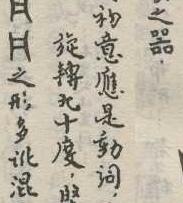 之器．
初意應是動詞，
旋轉九十度，
之形多訛混